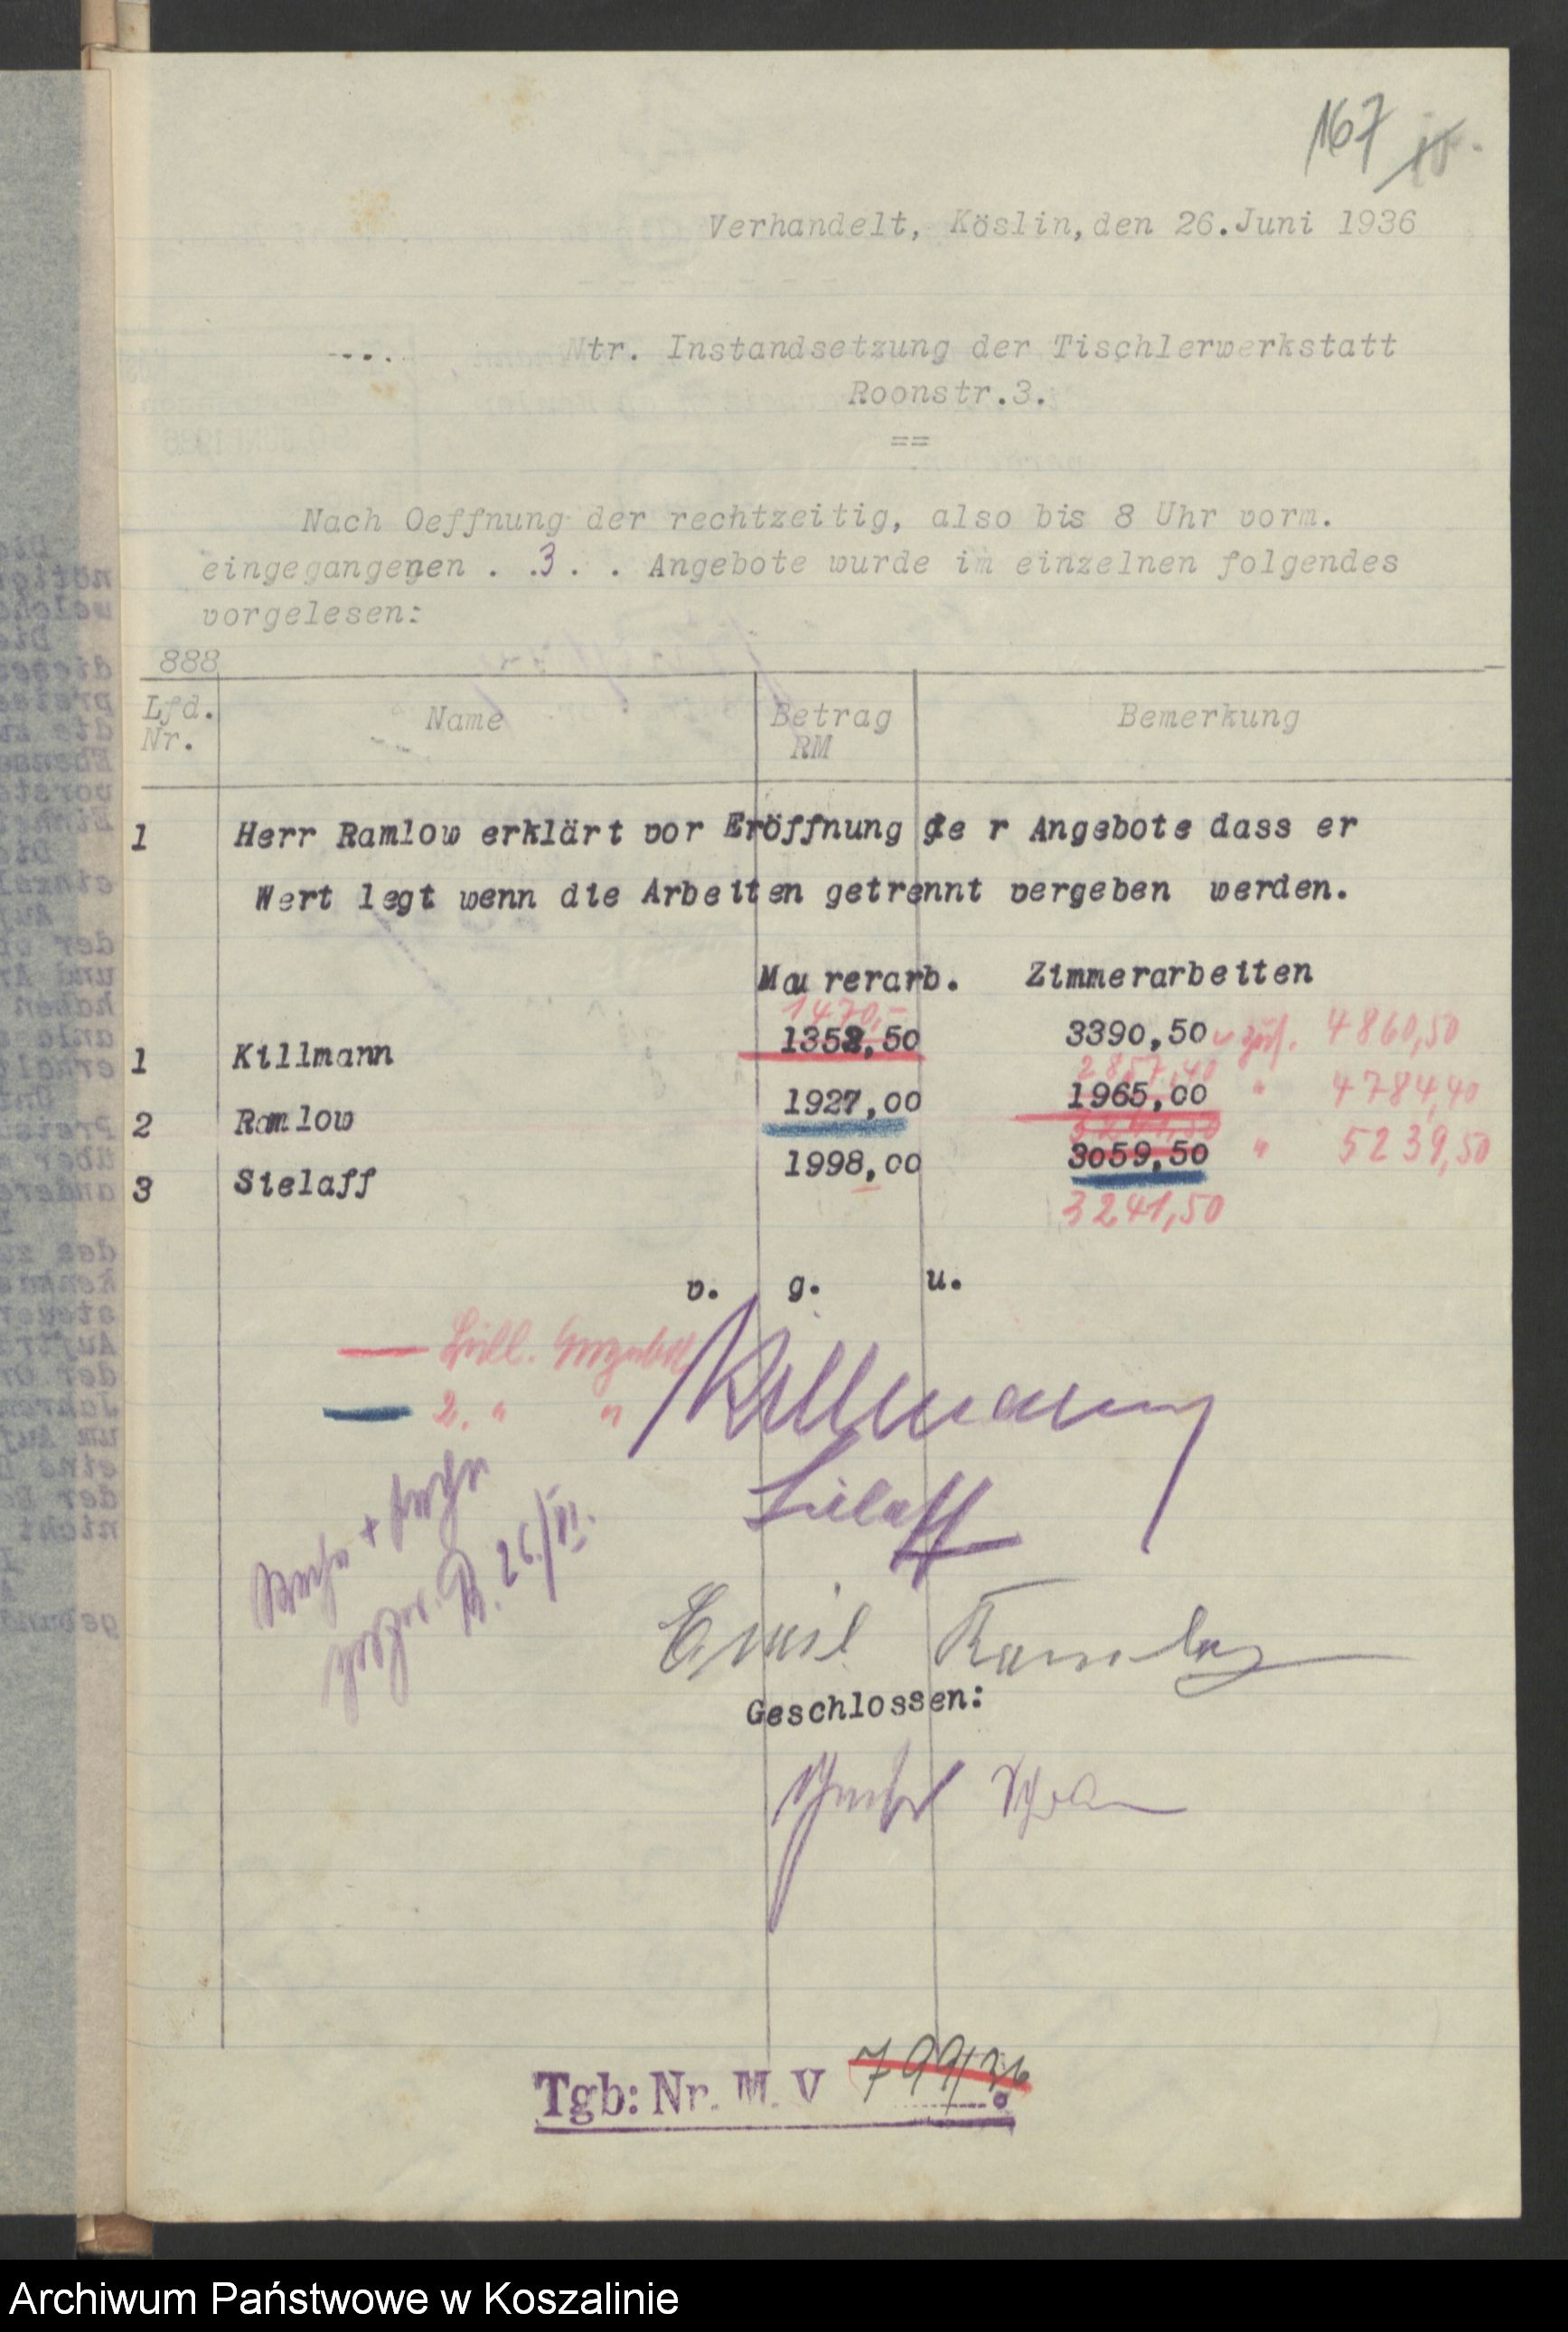 167
Verhandelt, Köslin,den 26.Juni 1936
Ntr. Instandsetzung der Tischlerwerkstatt
Roonstr.3.
==
Nach Oeffnung der rechtzeitig, also bis 8 Uhr vorm.
eingegangenen . .3. . Angebote wurde im einzelnen folgendes
vorgelesen:
888
Lfd. Nr. Name Betrag RM Bemerkung
1 Herr Ramlow erklärt vor Eröffnung de r Angebote dass er
Wert legt wenn die Arbeiten getrennt vergeben werden.
Maurerarb. Zimmerarbeiten
1470,-
1 Killmann 1352,50 3390,50 zus. 4860,50
2857,40
2 Ramlow 1927,00 1965,00 " 4784,40
3241,50
3 Stelaff 1998,00 3059,50 " 5239,50
3241,50
v. g. u.
2. " "
Killmann
Stelaff
26./VI.
Emil Ramlow
Geschlossen:
Tgb: Nr. M. V 799/36